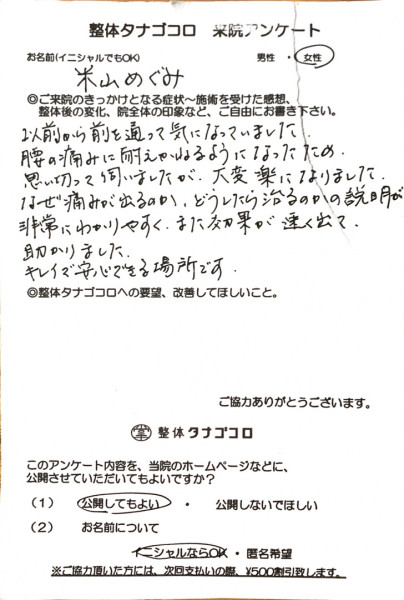 整体タナゴコロ 来院アンケート
お名前(イニシャルでもOK) 男性 ・ 女性
米山めぐみ
◎ご来院のきっかけとなる症状～施術を受けた感想、
整体後の変化、院全体の印象など、ご自由にお書き下さい。
以前から前を通って気になっていました。
腰の痛みに耐えかねるようになったため、
思い切って伺いましたが、大変楽になりました。
なぜ痛みが出るのか、どうしたら治るのかの説明が
非常にわかりやすく、また効果が速く出て、
助かりました。
キレイで安心できる場所です。
◎整体タナゴコロへの要望、改善してほしいこと。
ご協力ありがとうございます。
掌 整体タナゴコロ
このアンケート内容を、当院のホームページなどに、
公開させていただいてもよいですか？
(1) 公開してもよい ・ 公開しないでほしい
(2) お名前について
イニシャルならOK ・ 匿名希望
※ご協力頂いた方には、次回支払いの際、¥500割引致します。